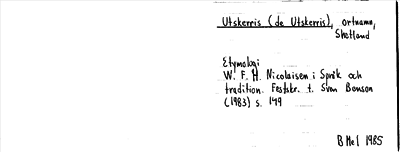 Utskerris (de Utskerris), ortnamn,
Shetland
Etymologi
W. F. H. Nicolaisen i Språk och
tradition. Festskr. t. Sven Benson
(1983) s. 149
B Hel 1985